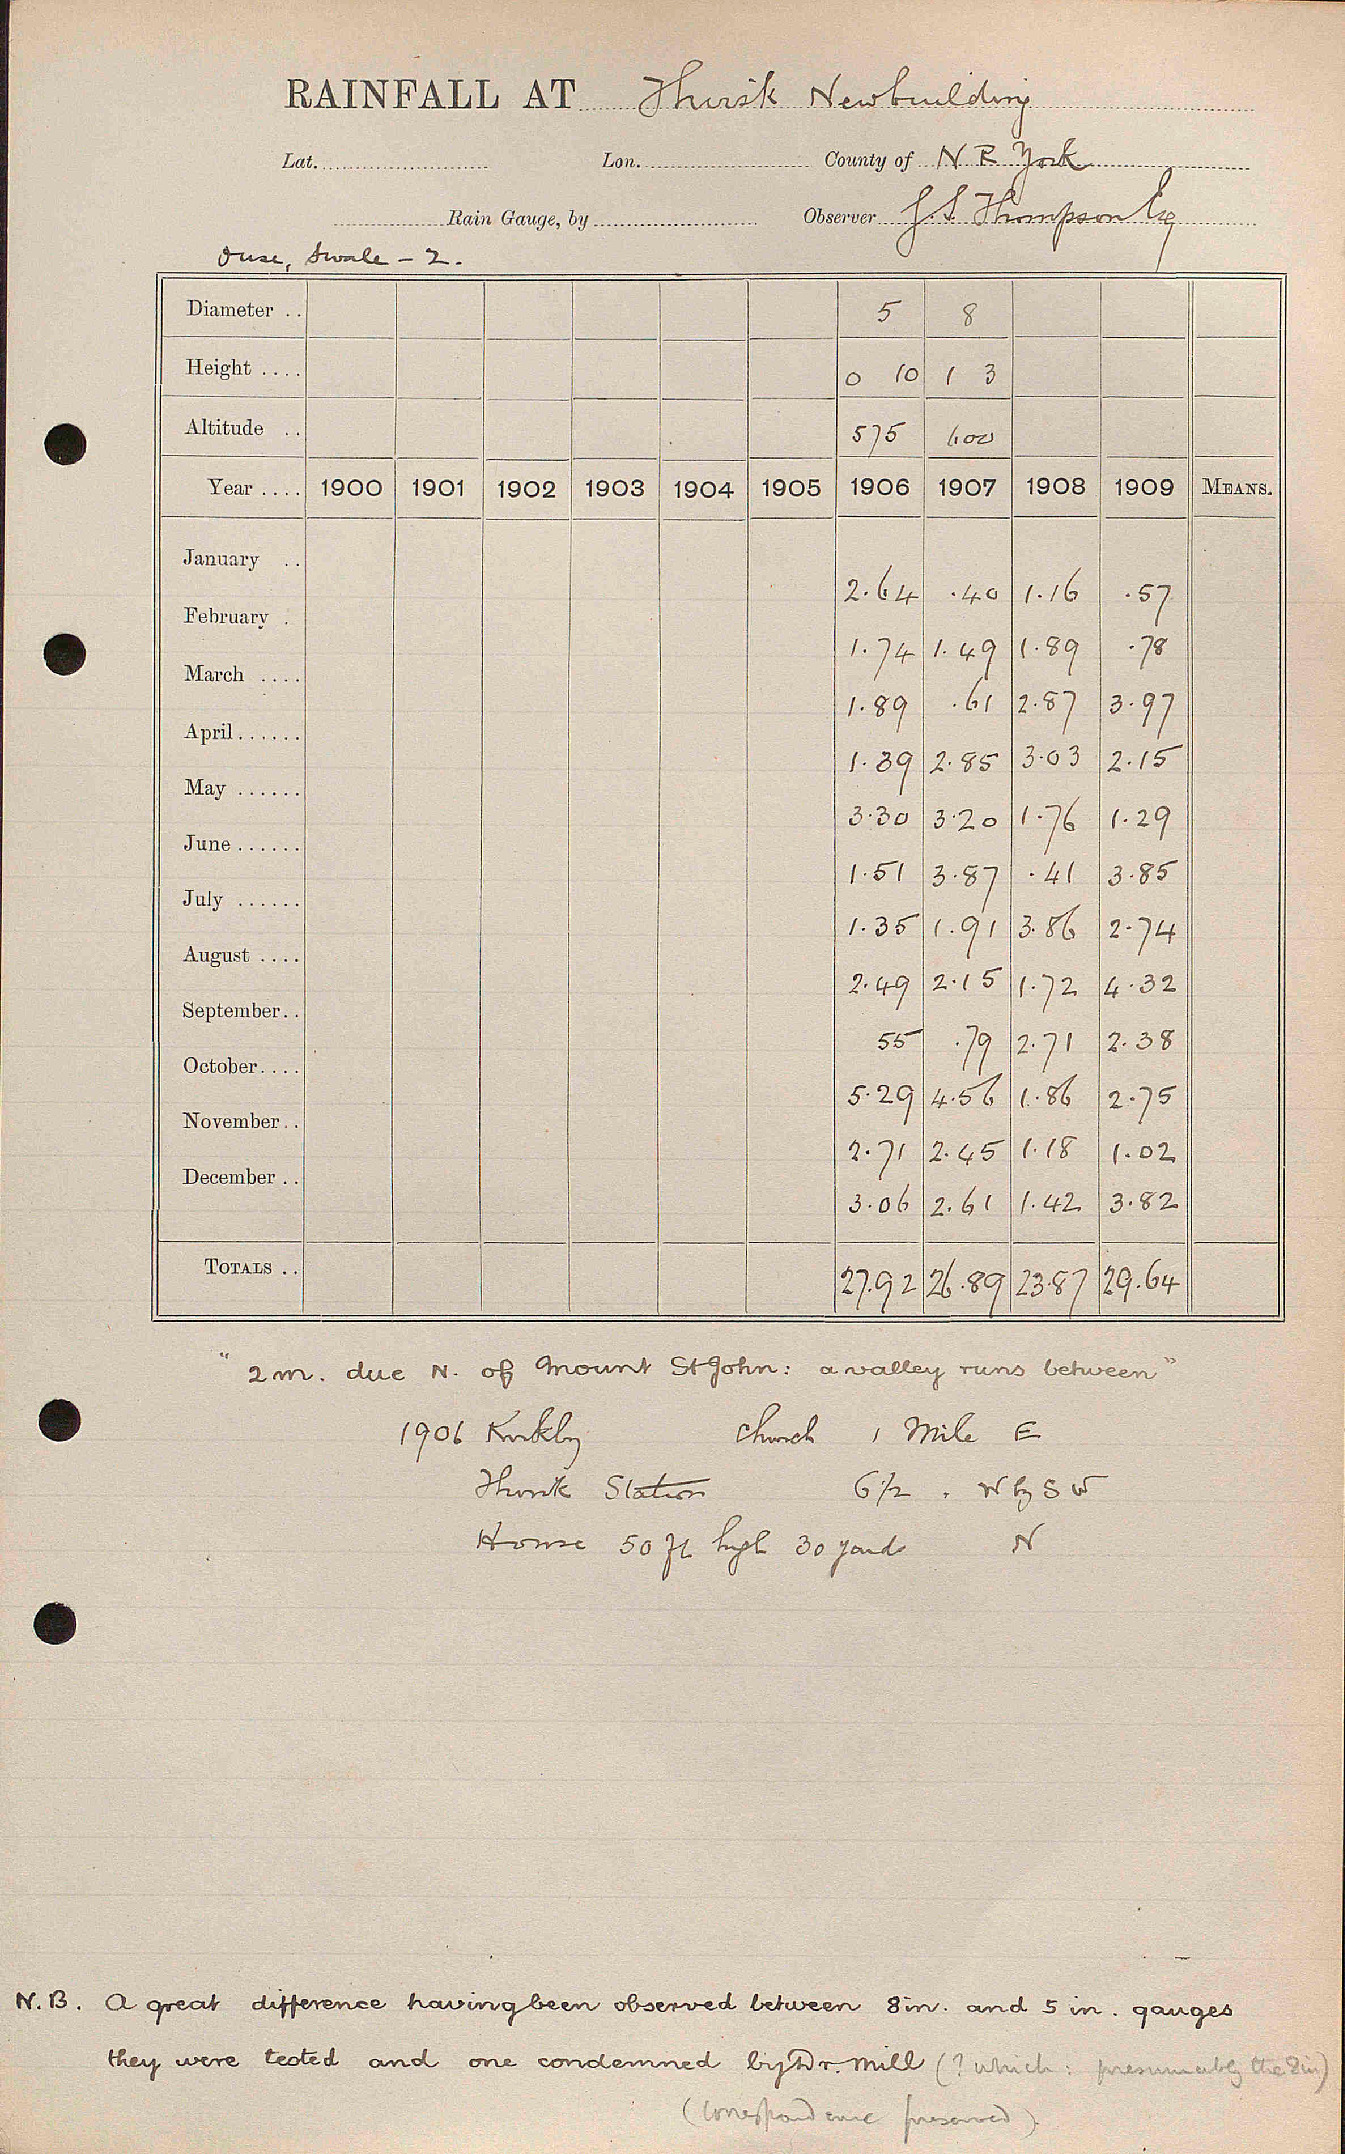 RAINFALL AT Thirsk Newbuilding
Lat. Lon. County of N R York
Rain Gauge, by Observer J. S. Thompson Esq
Ouse, Swale - 2.
Diameter .. 5 8
Height .... 0 10 1 3
Altitude .. 575 600
Year .... 1900 1901 1902 1903 1904 1905 1906 1907 1908 1909 MEANS.
January .. 2.64 .40 1.16 .57
February . 1.74 1.49 1.89 .78
March .... 1.89 .61 2.87 3.97
April ...... 1.39 2.85 3.03 2.15
May ...... 3.30 3.20 1.76 1.29
June ...... 1.51 3.87 .41 3.85
July ...... 1.35 1.91 3.86 2.74
August .... 2.49 2.15 1.72 4.32
September .. 55 .79 2.71 2.38
October .... 5.29 4.56 1.86 2.75
November .. 2.71 2.45 1.18 1.02
December .. 3.06 2.61 1.42 3.82
TOTALS .. 27.92 26.89 23.87 29.64
"2m. due N. of Mount St John: a valley runs between"
1906 Kirkby Church 1 Mile E
Thirsk Station 6 1/2 . W by S W
House 50 ft high 30 yards N
N.B. A great difference having been observed between 8in. and 5 in. gauges
they were tested and one condemned by Dr. Mill (? which: presumably the 8in)
(Correspondence preserved)